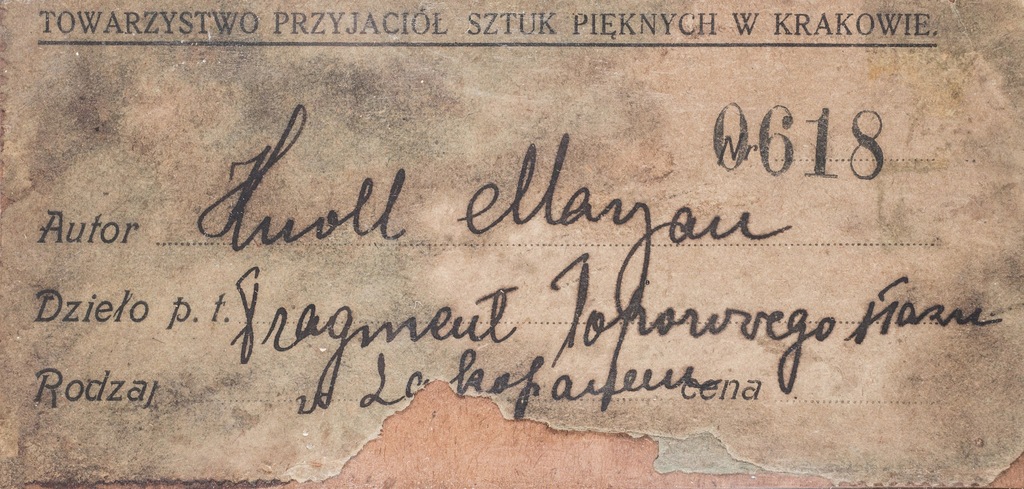 TOWARZYSTWO PRZYJACIÓŁ SZTUK PIĘKNYCH W KRAKOWIE.
Nr. 0618
Autor Knoll Maryan
Dzieło p. t. Fragment Toporowego stawu
Rodzaj w Zakopanem cena